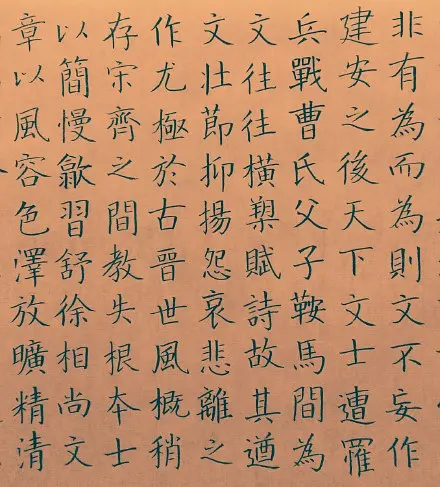 非有為而為則文不妄作
建安之後天下文士遭罹
兵戰曹氏父子鞍馬間為
文往往橫槊賦詩故其遒
文壯節抑揚怨哀悲離之
作尤極於古晉世風概稍
存宋齊之間教失根本士
以簡慢歙習舒徐相尚文
章以風容色澤放曠精清